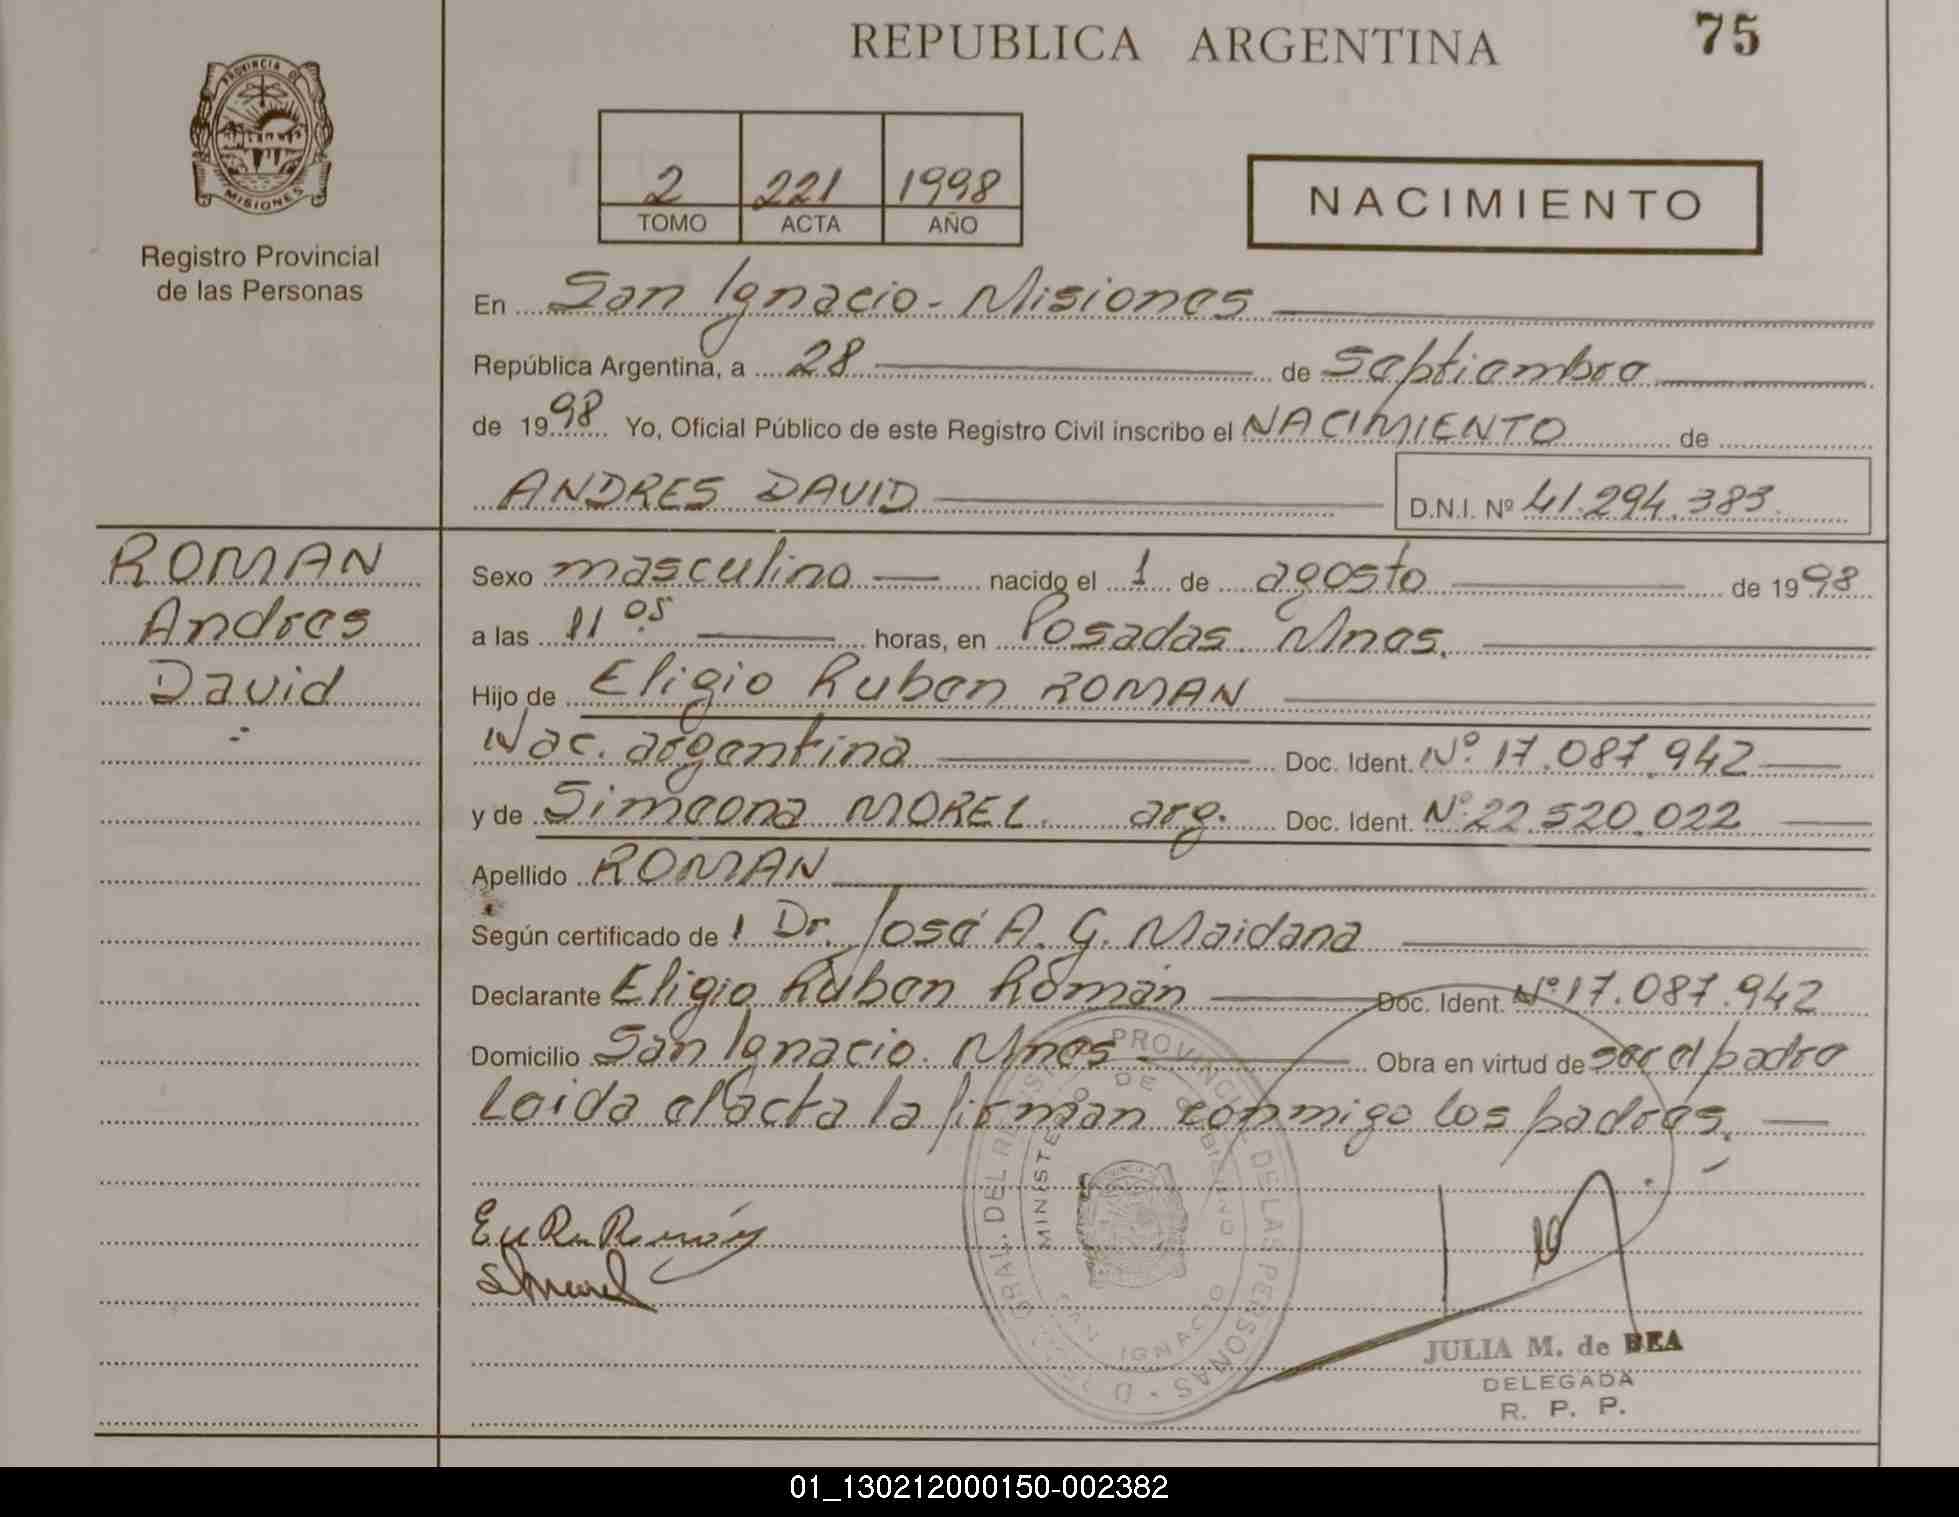 REPUBLICA ARGENTINA
75
PROVINCIA DE
MISIONES
Registro Provincial
de las Personas
2 221 1998
TOMO ACTA AÑO
NACIMIENTO
En San Ignacio - Misiones
República Argentina, a 28 de Septiembre
de 1998 Yo, Oficial Público de este Registro Civil inscribo el NACIMIENTO de
ANDRES DAVID D.N.I. Nº 41.294.383
ROMAN
Andres
David
Sexo masculino nacido el 1 de agosto de 1998
a las 11 05 horas, en Posadas. Mnes.
Hijo de Eligio Ruben ROMAN
Nac. argentina Doc. Ident. Nº 17.087.942
y de Simeona MOREL. arg. Doc. Ident. Nº 22.520.022
Apellido ROMAN
Según certificado de Dr. José A. G. Maidana
Declarante Eligio Ruben Román Doc. Ident. Nº 17.087.942
Domicilio San Ignacio. Mnes Obra en virtud de ser el padre
Leida el acta la firman conmigo los padres.
PROVINCIAL DE LAS PERSONAS
GRAL. DEL
MINISTERIO DE GOBIERNO
SAN IGNACIO
JULIA M. de BEA
DELEGADA
R. P. P.
01_130212000150-002382